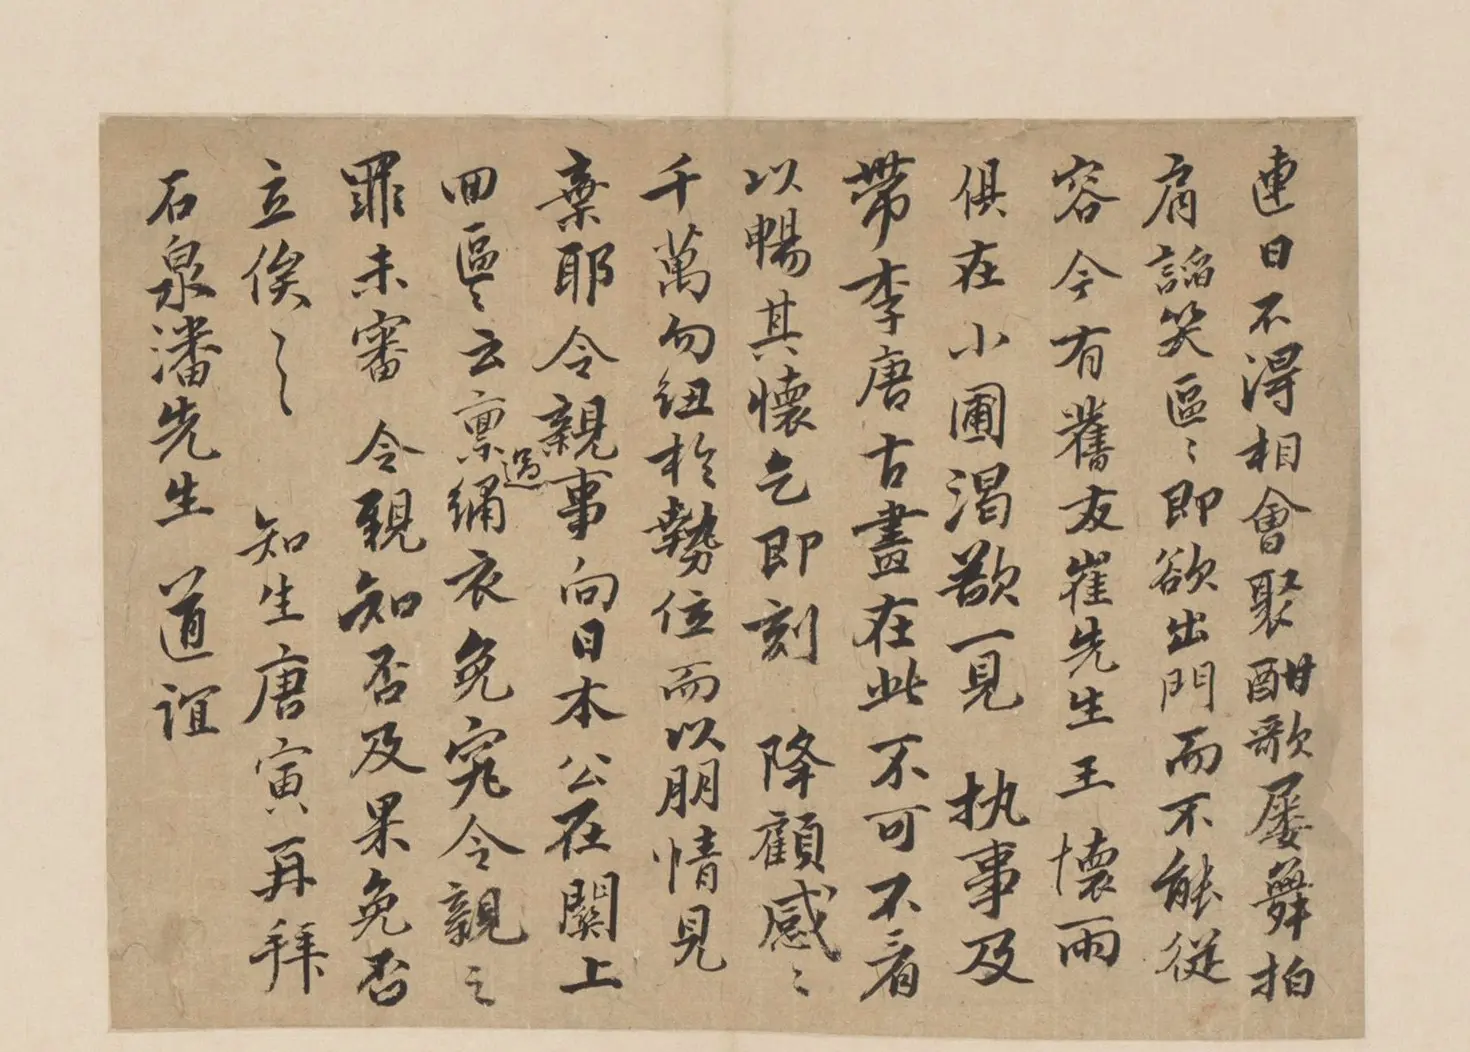 連日不得相會聚酣歌屢舞拍
肩謟笑區〻即欲出門而不能從
容今有舊友崔先生王懷雨
俱在小圃渴欲一見 執事及
帶李唐古畫在此不可不看
以暢其懷乞即刻 降顧感〻
千萬勿紐於勢位而以朋情見
棄耶令親事向日本公在關上
回區〻云稟過繡衣免究令親之
罪未審 令親知否及果免否
立俟〻〻 知生唐寅再拜
石泉潘先生 道誼